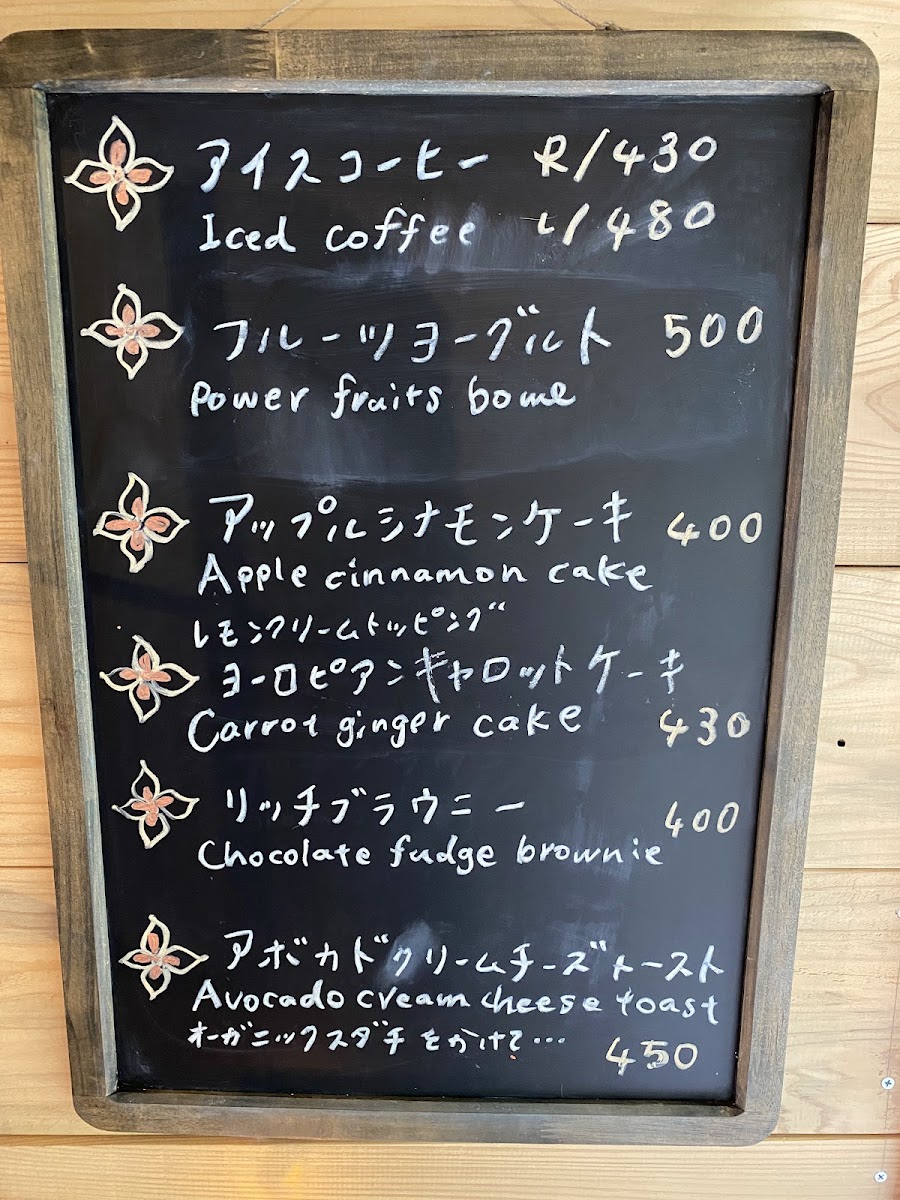 アイスコーヒー R/430
Iced coffee L/480
フルーツヨーグルト 500
Power fruits bowe
アップルシナモンケーキ 400
Apple cinnamon cake
レモンクリームトッピング
ヨーロピアンキャロットケーキ
Carrot ginger cake 430
リッチブラウニー 400
Chocolate fudge brownie
アボカドクリームチーズトースト
Avocado cream cheese toast
オーガニックスダチをかけて…
450